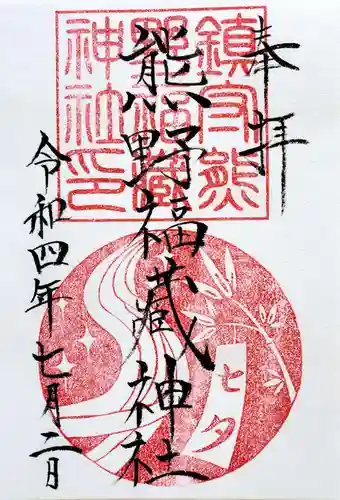 奉拝
鎮守熊
野福蔵
神社印
熊野福蔵神社
七夕
令和四年七月二日